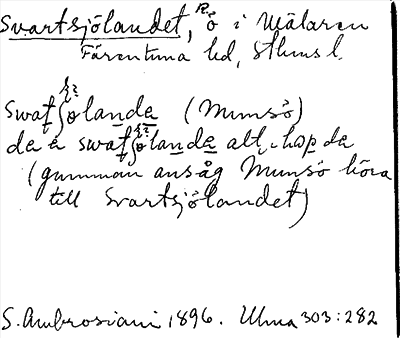 Svartsjölandet, ö i Mälaren
Färentuna hd, Sthms l.
swaʈʃølande (Munsö)
de e swaʈʃølande alt ihop de
(gumman ansåg Munsö höra
till Svartsjölandet)
S. Ambrosiani 1896. Ulma 303:282